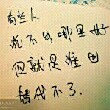 有些人
说不哪里好
但就是谁都
替代不了